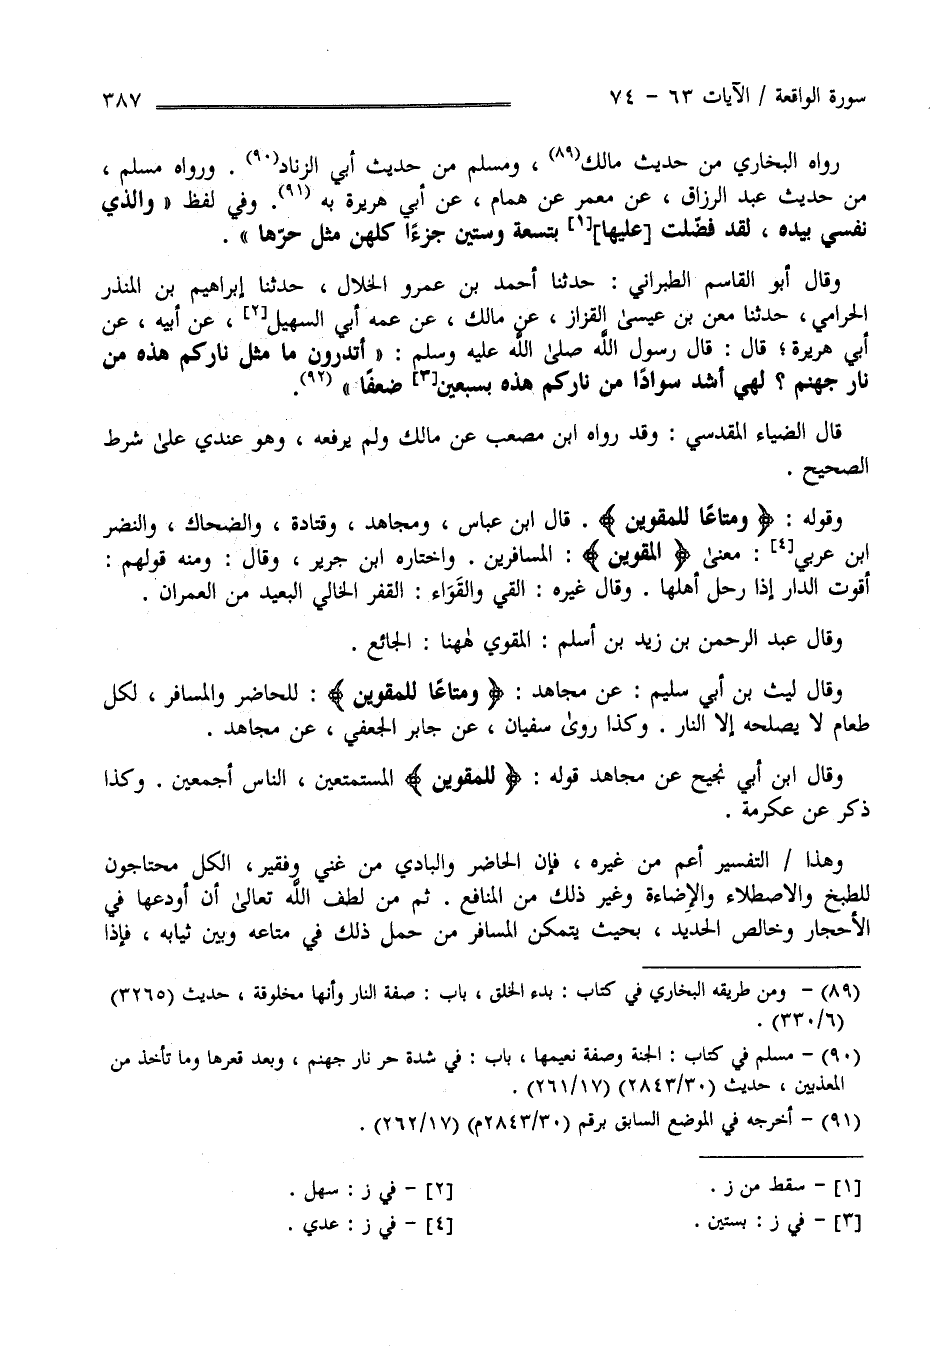 سورة الواقعة / الآيات ٦٣ - ٧٤ ٣٨٧
رواه البخاري من حديث مالك(٨٩) ، ومسلم من حديث أبي الزناد(٩٠) . ورواه مسلم ،
من حديث عبد الرزاق ، عن معمر عن همام ، عن أبي هريرة به (٩١). وفي لفظ « والذي
نفسي بيده ، لقد فضّلت [عليها][١] بتسعة وستين جزءًا كلهن مثل حرّها » .
وقال أبو القاسم الطبراني : حدثنا أحمد بن عمرو الخلال ، حدثنا إبراهيم بن المنذر
الحرامي ، حدثنا معن بن عيسىٰ القزاز ، عن مالك ، عن عمه أبي السهيل[٢] ، عن أبيه ، عن
أبي هريرة؛ قال : قال رسول اللَّه صلىٰ اللَّه عليه وسلم : « أتدرون ما مثل ناركم هذه من
نار جهنم ؟ لهي أشد سوادًا من ناركم هذه بسبعين[٣] ضعفًا » (٩٢).
قال الضياء المقدسي : وقد رواه ابن مصعب عن مالك ولم يرفعه ، وهو عندي علىٰ شرط
الصحيح .
وقوله : ﴿ ومتاعًا للمقوين ﴾ . قال ابن عباس ، ومجاهد ، وقتادة ، والضحاك ، والنضر
ابن عربي[٤] : معنىٰ ﴿ المقوين ﴾ : المسافرين . واختاره ابن جرير ، وقال : ومنه قولهم :
أقوت الدار إذا رحل أهلها . وقال غيره : القي والقَوَاء : القفر الخالي البعيد من العمران .
وقال عبد الرحمن بن زيد بن أسلم : المقوي هٰهنا : الجائع .
وقال ليث بن أبي سليم : عن مجاهد : ﴿ ومتاعًا للمقوين ﴾ : للحاضر والمسافر ، لكل
طعام لا يصلحه إلا النار . وكذا روىٰ سفيان ، عن جابر الجعفي ، عن مجاهد .
وقال ابن أبي نجيح عن مجاهد قوله : ﴿ للمقوين ﴾ المستمتعين ، الناس أجمعين . وكذا
ذكر عن عكرمة .
وهذا / التفسير أعم من غيره ، فإن الحاضر والبادي من غني وفقير ، الكل محتاجون
للطبخ والاصطلاء والإضاءة وغير ذلك من المنافع . ثم من لطف اللَّه تعالىٰ أن أودعها في
الأحجار وخالص الحديد ، بحيث يتمكن المسافر من حمل ذلك في متاعه وبين ثيابه ، فإذا
(٨٩) - ومن طريقه البخاري في كتاب : بدء الخلق ، باب : صفة النار وأنها مخلوقة ، حديث (٣٢٦٥)
(٣٣٠/٦) .
(٩٠) - مسلم في كتاب : الجنة وصفة نعيمها ، باب : في شدة حر نار جهنم ، وبعد قعرها وما تأخذ من
المعذبين ، حديث (٢٨٤٣/٣٠) (٢٦١/١٧) .
(٩١) - أخرجه في الموضع السابق برقم (٢٨٤٣/٣٠م) (٢٦٢/١٧) .
[١] - سقط من ز . [٢] - في ز : سهل .
[٣] - في ز : بستين . [٤] - في ز : عدي .